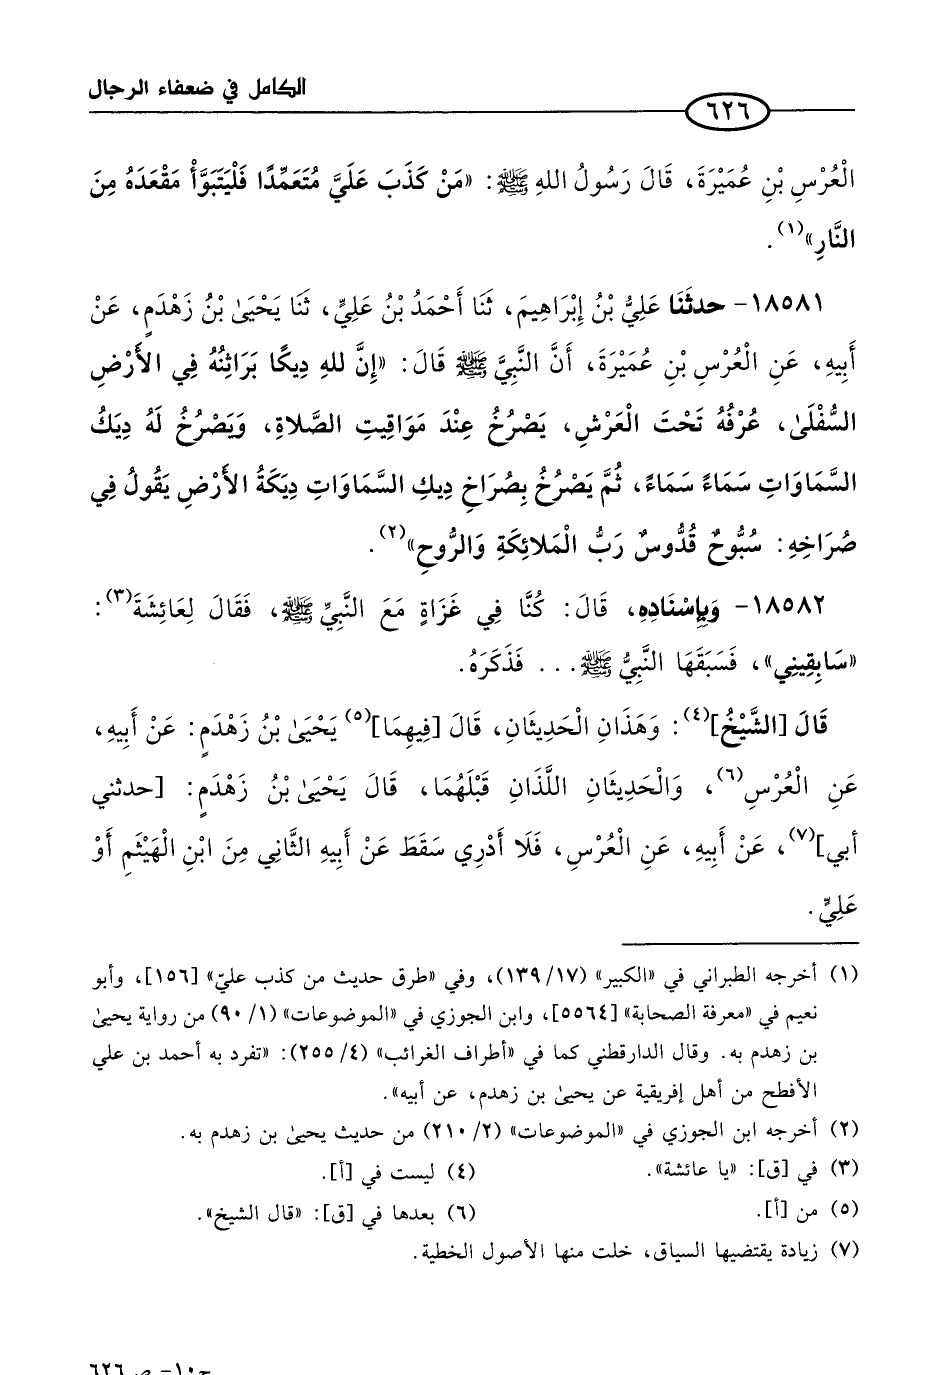 الكامل في ضعفاء الرجال
٦٢٦
الْعُرْسِ بْنِ عُمَيْرَةَ، قَالَ رَسُولُ اللهِ ﷺ: «مَنْ كَذَبَ عَلَيَّ مُتَعَمِّدًا فَلْيَتَبَوَّأْ مَقْعَدَهُ مِنَ
النَّارِ»(١).
١٨٥٨١- حدثَنَا عَلِيُّ بْنُ إِبْرَاهِيمَ، ثَنَا أَحْمَدُ بْنُ عَلِيٍّ، ثَنَا يَحْيَىٰ بْنُ زَهْدَمٍ، عَنْ
أَبِيهِ، عَنِ الْعُرْسِ بْنِ عُمَيْرَةَ، أَنَّ النَّبِيَّ ﷺ قَالَ: «إِنَّ للهِ دِيكًا بَرَاثِنُهُ فِي الأَرْضِ
السُّفْلَىٰ، عُرْفُهُ تَحْتَ الْعَرْشِ، يَصْرُخُ عِنْدَ مَوَاقِيتِ الصَّلاةِ، وَيَصْرُخُ لَهُ دِيَكُ
السَّمَاوَاتِ سَمَاءً سَمَاءً، ثُمَّ يَصْرُخُ بِصُرَاخِ دِيكِ السَّمَاوَاتِ دِيَكَةُ الأَرْضِ يَقُولُ فِي
صُرَاخِهِ: سُبُّوحٌ قُدُّوسٌ رَبُّ الْمَلائِكَةِ وَالرُّوحِ»(٢).
١٨٥٨٢- وَبِإِسْنَادِهِ، قَالَ: كُنَّا فِي غَزَاةٍ مَعَ النَّبِيِّ ﷺ، فَقَالَ لِعَائِشَةَ(٣):
«سَابِقِينِي»، فَسَبَقَهَا النَّبِيُّ ﷺ... فَذَكَرَهُ.
قَالَ [الشَّيْخُ](٤): وَهَذَانِ الْحَدِيثَانِ، قَالَ [فِيهِمَا](٥) يَحْيَىٰ بْنُ زَهْدَمٍ: عَنْ أَبِيهِ،
عَنِ الْعُرْسِ(٦)، وَالْحَدِيثَانِ اللَّذَانِ قَبْلَهُمَا، قَالَ يَحْيَىٰ بْنُ زَهْدَمٍ: [حدثني
أبي](٧)، عَنْ أَبِيهِ، عَنِ الْعُرْسِ، فَلَا أَدْرِي سَقَطَ عَنْ أَبِيهِ الثَّانِي مِنَ ابْنِ الْهَيْثَمِ أَوْ
عَلِيٍّ.
(١) أخرجه الطبراني في «الكبير» (١٧/ ١٣٩)، وفي «طرق حديث من كذب عليّ» [١٥٦]، وأبو
نعيم في «معرفة الصحابة» [٥٥٦٤]، وابن الجوزي في «الموضوعات» (١/ ٩٠) من رواية يحيىٰ
بن زهدم به. وقال الدارقطني كما في «أطراف الغرائب» (٤/ ٢٥٥): «تفرد به أحمد بن علي
الأفطح من أهل إفريقية عن يحيىٰ بن زهدم، عن أبيه».
(٢) أخرجه ابن الجوزي في «الموضوعات» (٢/ ٢١٠) من حديث يحيىٰ بن زهدم به.
(٣) في [ق]: «يا عائشة». (٤) ليست في [أ].
(٥) من [أ]. (٦) بعدها في [ق]: «قال الشيخ».
(٧) زيادة يقتضيها السياق، خلت منها الأصول الخطية.
ج١٠- ص٦٢٦